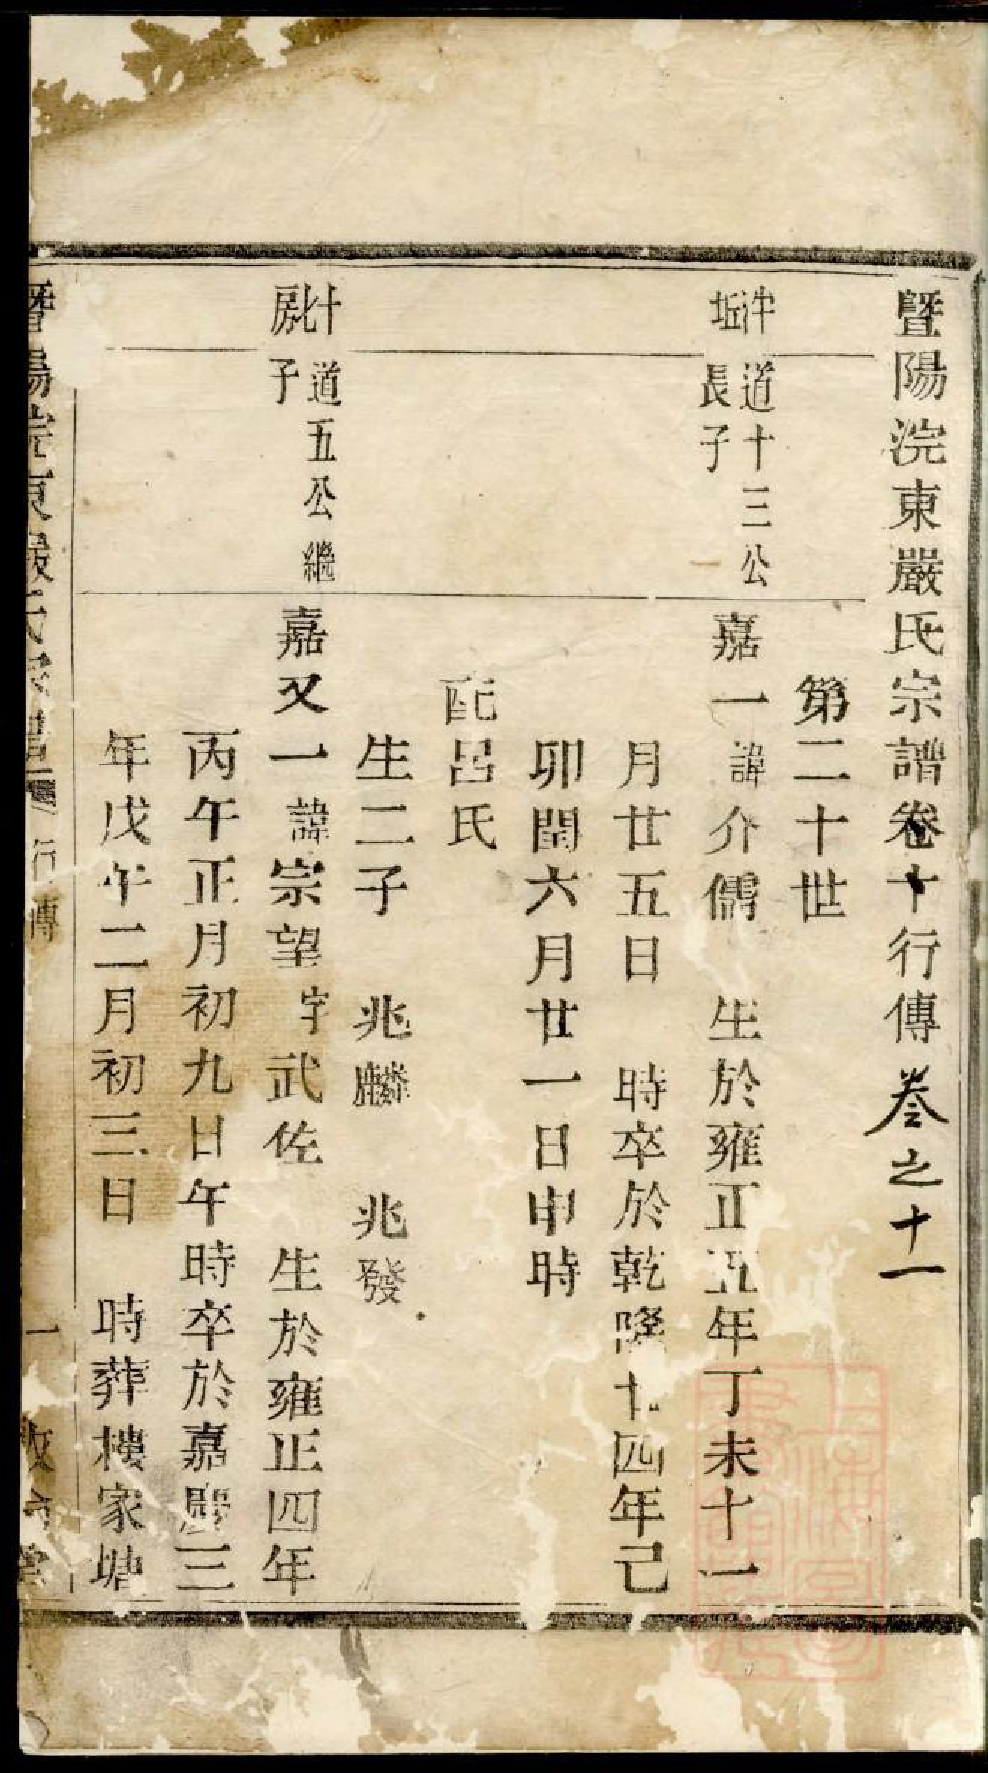 暨陽浣東嚴氏宗譜卷十行傳 卷之十一
第二十世
道十三公
長子
嘉一諱介儒 生於雍正五年丁未十一
月廿五日 時卒於乾隆十四年己
卯閏六月廿一日申時
配呂氏
生二子 兆麟 兆發
道五公繼
子
嘉又一諱宗望字武佐 生於雍正四年
丙午正月初九日午時卒於嘉慶三
年戊午二月初三日 時葬樓家塘
行傳 一